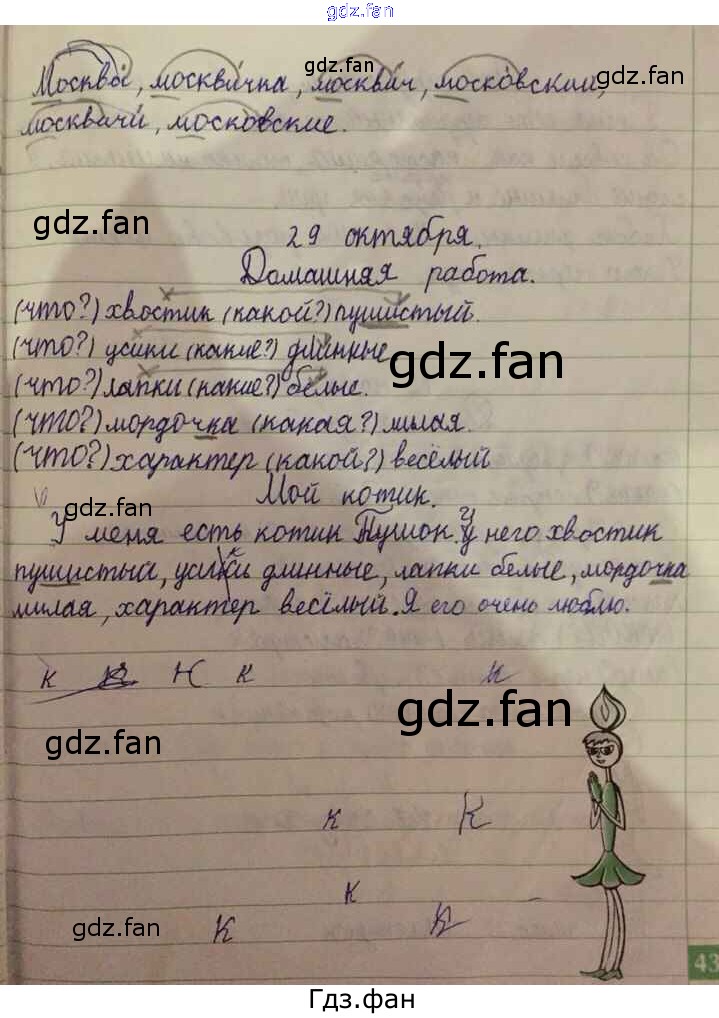 gdz.fan
Москва, москвичка, москвич, московский,
gdz.fan
gdz.fan
москвичи, московские.
gdz.fan
29 октября.
Домашняя работа.
(что?) хвостик (какой?) пушистый.
(что?) усики (какие?) длинные
gdz.fan
(что?) лапки (какие?) белые.
(что?) мордочка (какая?) милая.
(что?) характер (какой?) весёлый
Мой котик.
gdz.fan
У меня есть котик Пушок. У него хвостик
пушистый, усики длинные, лапки белые, мордочка
милая, характер весёлый. Я его очень люблю.
к Н к к
gdz.fan
gdz.fan
к К
к
gdz.fan
К К
43
Гдз.фан